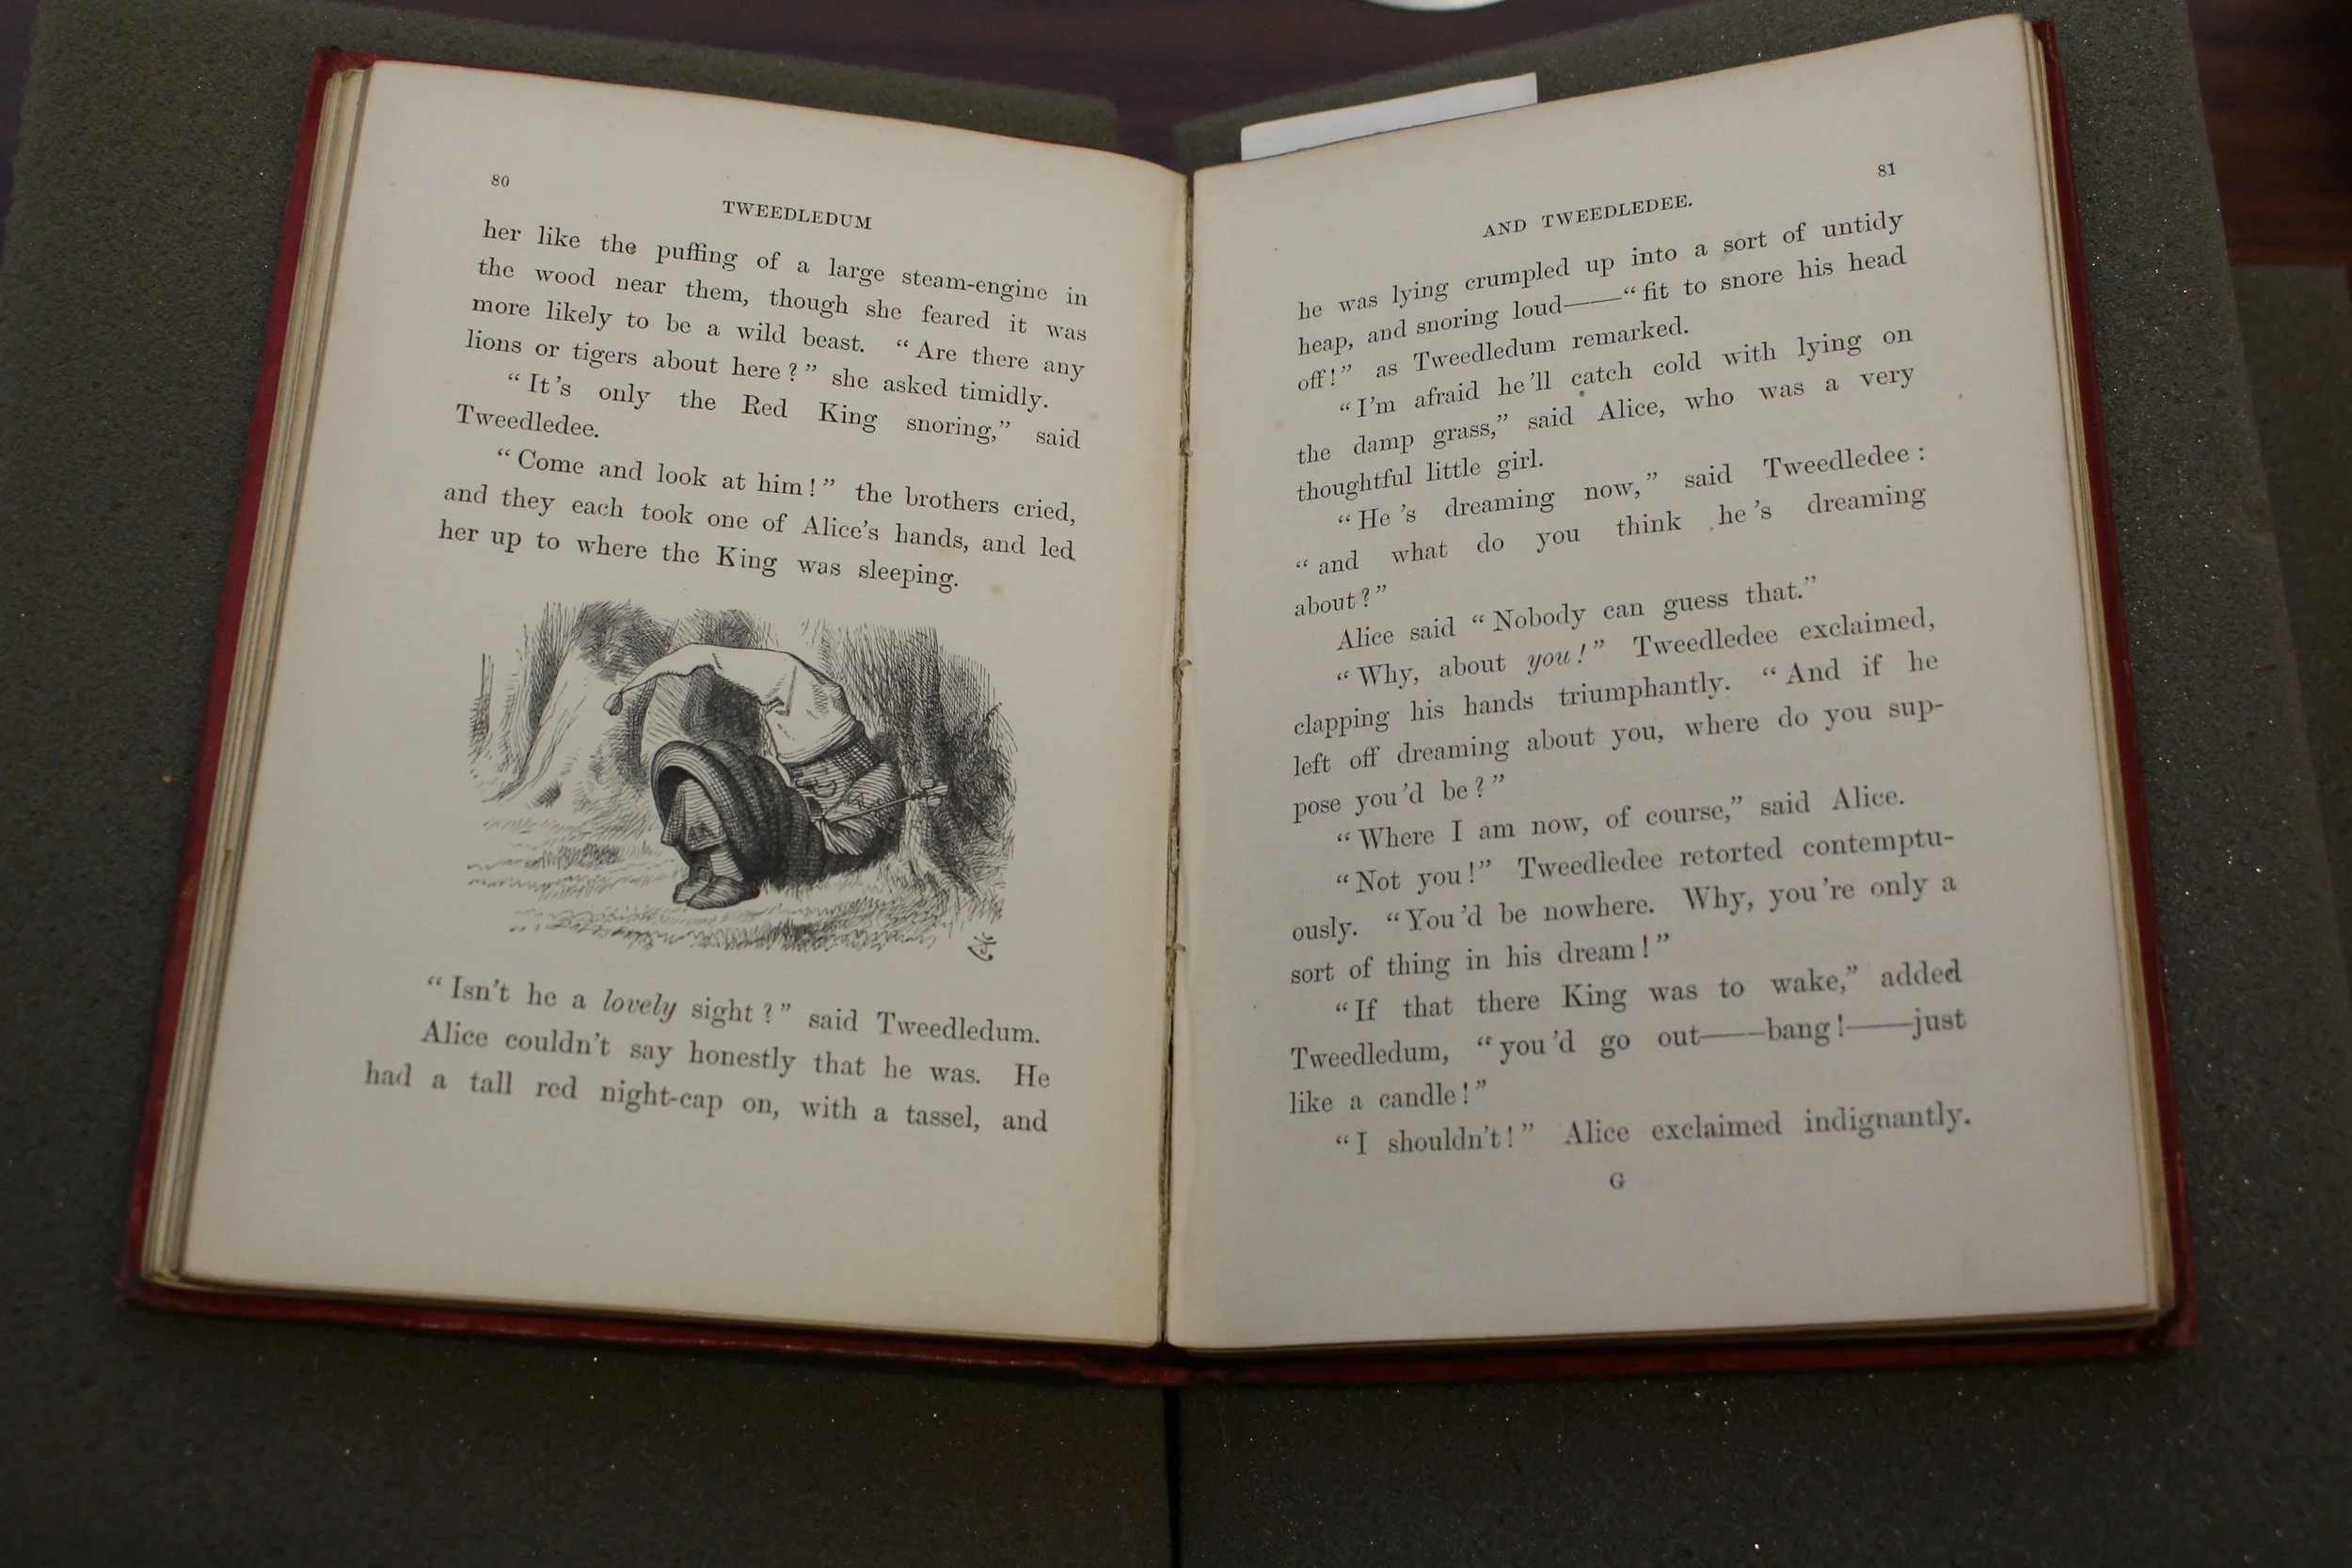 80
TWEEDLEDUM
her like the puffing of a large steam-engine in
the wood near them, though she feared it was
more likely to be a wild beast. “Are there any
lions or tigers about here?” she asked timidly.
“It's only the Red King snoring,” said
Tweedledee.
“Come and look at him!” the brothers cried,
and they each took one of Alice's hands, and led
her up to where the King was sleeping.
“Isn't he a lovely sight?” said Tweedledum.
Alice couldn't say honestly that he was. He
had a tall red night-cap on, with a tassel, and
81
AND TWEEDLEDEE.
he was lying crumpled up into a sort of untidy
heap, and snoring loud——“fit to snore his head
off!” as Tweedledum remarked.
“I'm afraid he'll catch cold with lying on
the damp grass,” said Alice, who was a very
thoughtful little girl.
“He's dreaming now,” said Tweedledee:
“and what do you think he's dreaming
about?”
Alice said “Nobody can guess that.”
“Why, about you!” Tweedledee exclaimed,
clapping his hands triumphantly. “And if he
left off dreaming about you, where do you sup-
pose you'd be?”
“Where I am now, of course,” said Alice.
“Not you!” Tweedledee retorted contemptu-
ously. “You'd be nowhere. Why, you're only a
sort of thing in his dream!”
“If that there King was to wake,” added
Tweedledum, “you'd go out——bang!——just
like a candle!”
“I shouldn't!” Alice exclaimed indignantly.
G